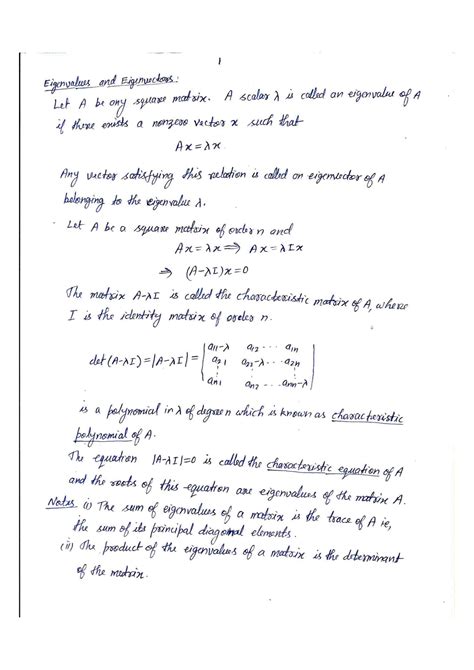 1
Eigenvalues and Eigenvectors:
Let A be any square matrix. A scalar λ is called an eigenvalue of A
if there exists a nonzero vector x such that
Ax = λx.
Any vector satisfying this relation is called an eigenvector of A
belonging to the eigenvalue λ.
Let A be a square matrix of order n and
Ax = λx ⟹ Ax = λIx
⇒ (A-λI)x = 0
The matrix A-λI is called the characteristic matrix of A, where
I is the identity matrix of order n.
det(A-λI) = |A-λI| = | a11-λ a12 ... a1n
a21 a22-λ ... a2n
⋮ ⋮ ⋮
an1 an2 ... ann-λ |
is a polynomial in λ of degree n which is known as characteristic
polynomial of A.
The equation |A-λI|=0 is called the characteristic equation of A
and the roots of this equation are eigenvalues of the matrix A.
Notes (i) The sum of eigenvalues of a matrix is the trace of A ie,
the sum of its principal diagonal elements.
(ii) The product of the eigenvalues of a matrix is the determinant
of the matrix.